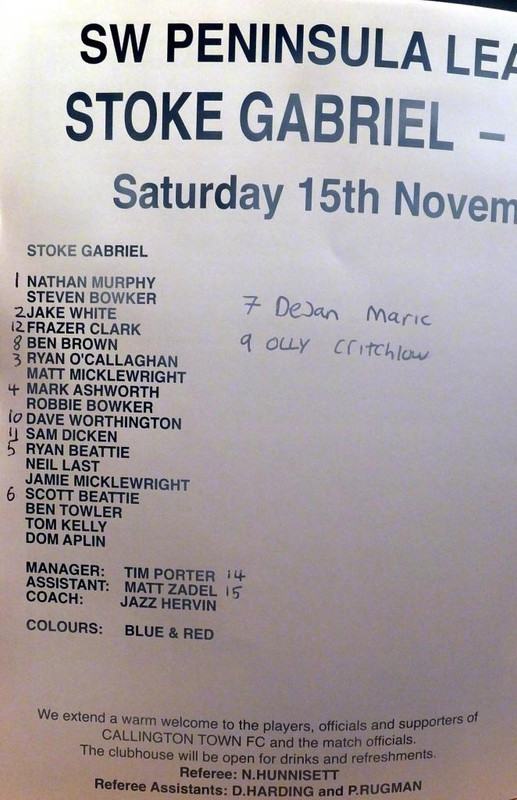 SW PENINSULA LEA
STOKE GABRIEL –
Saturday 15th Novem
STOKE GABRIEL
1 NATHAN MURPHY
STEVEN BOWKER
2 JAKE WHITE
12 FRAZER CLARK
8 BEN BROWN
3 RYAN O'CALLAGHAN
MATT MICKLEWRIGHT
4 MARK ASHWORTH
ROBBIE BOWKER
10 DAVE WORTHINGTON
11 SAM DICKEN
5 RYAN BEATTIE
NEIL LAST
JAMIE MICKLEWRIGHT
6 SCOTT BEATTIE
BEN TOWLER
TOM KELLY
DOM APLIN
7 DeJan Maric
9 OLLY Critchlow
MANAGER: TIM PORTER 14
ASSISTANT: MATT ZADEL 15
COACH: JAZZ HERVIN
COLOURS: BLUE & RED
We extend a warm welcome to the players, officials and supporters of
CALLINGTON TOWN FC and the match officials.
The clubhouse will be open for drinks and refreshments.
Referee: N.HUNNISETT
Referee Assistants: D.HARDING and P.RUGMAN